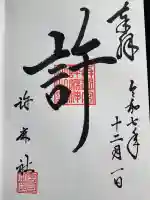 奉拝
令和七年
十二月一日
許
許 社